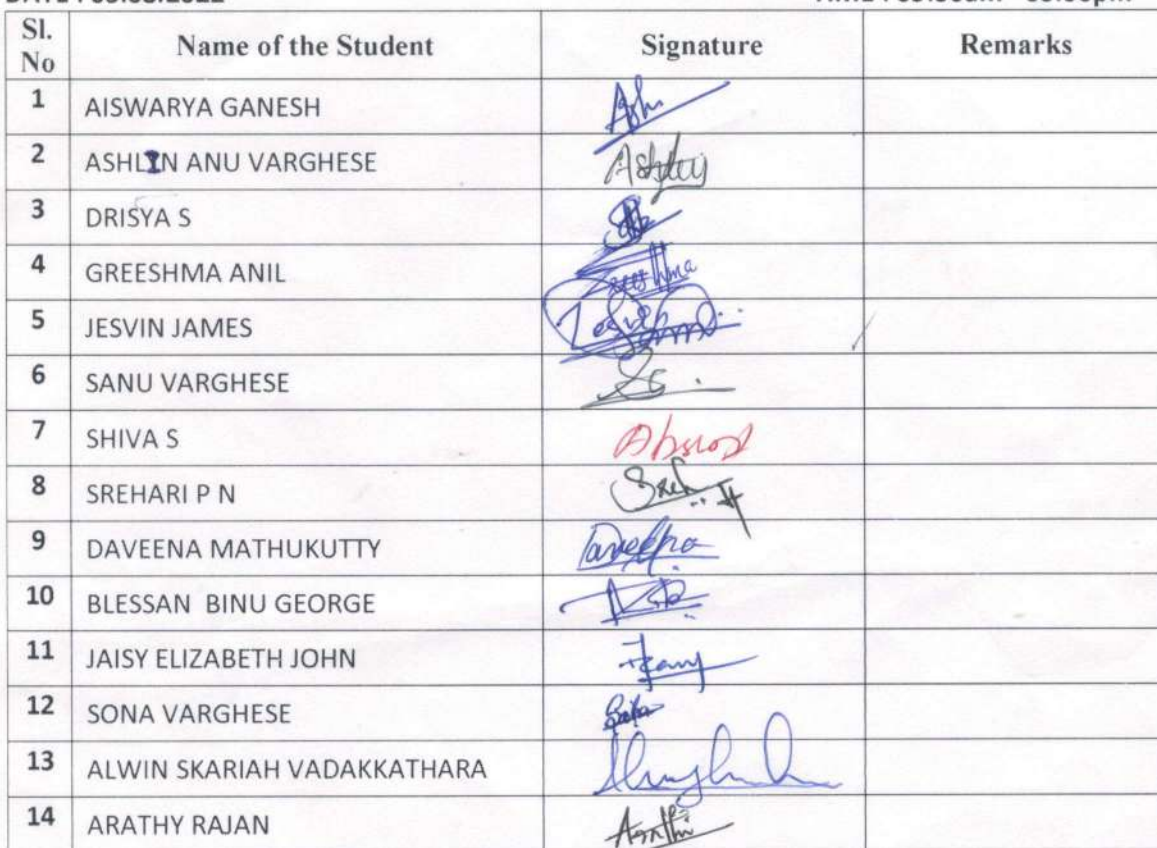 Sl. No Name of the Student Signature Remarks
1 AISWARYA GANESH
2 ASHLIN ANU VARGHESE Ashley
3 DRISYA S
4 GREESHMA ANIL Greeshma
5 JESVIN JAMES
6 SANU VARGHESE
7 SHIVA S Absent
8 SREHARI P N
9 DAVEENA MATHUKUTTY Daveena
10 BLESSAN BINU GEORGE
11 JAISY ELIZABETH JOHN
12 SONA VARGHESE
13 ALWIN SKARIAH VADAKKATHARA
14 ARATHY RAJAN Arathi